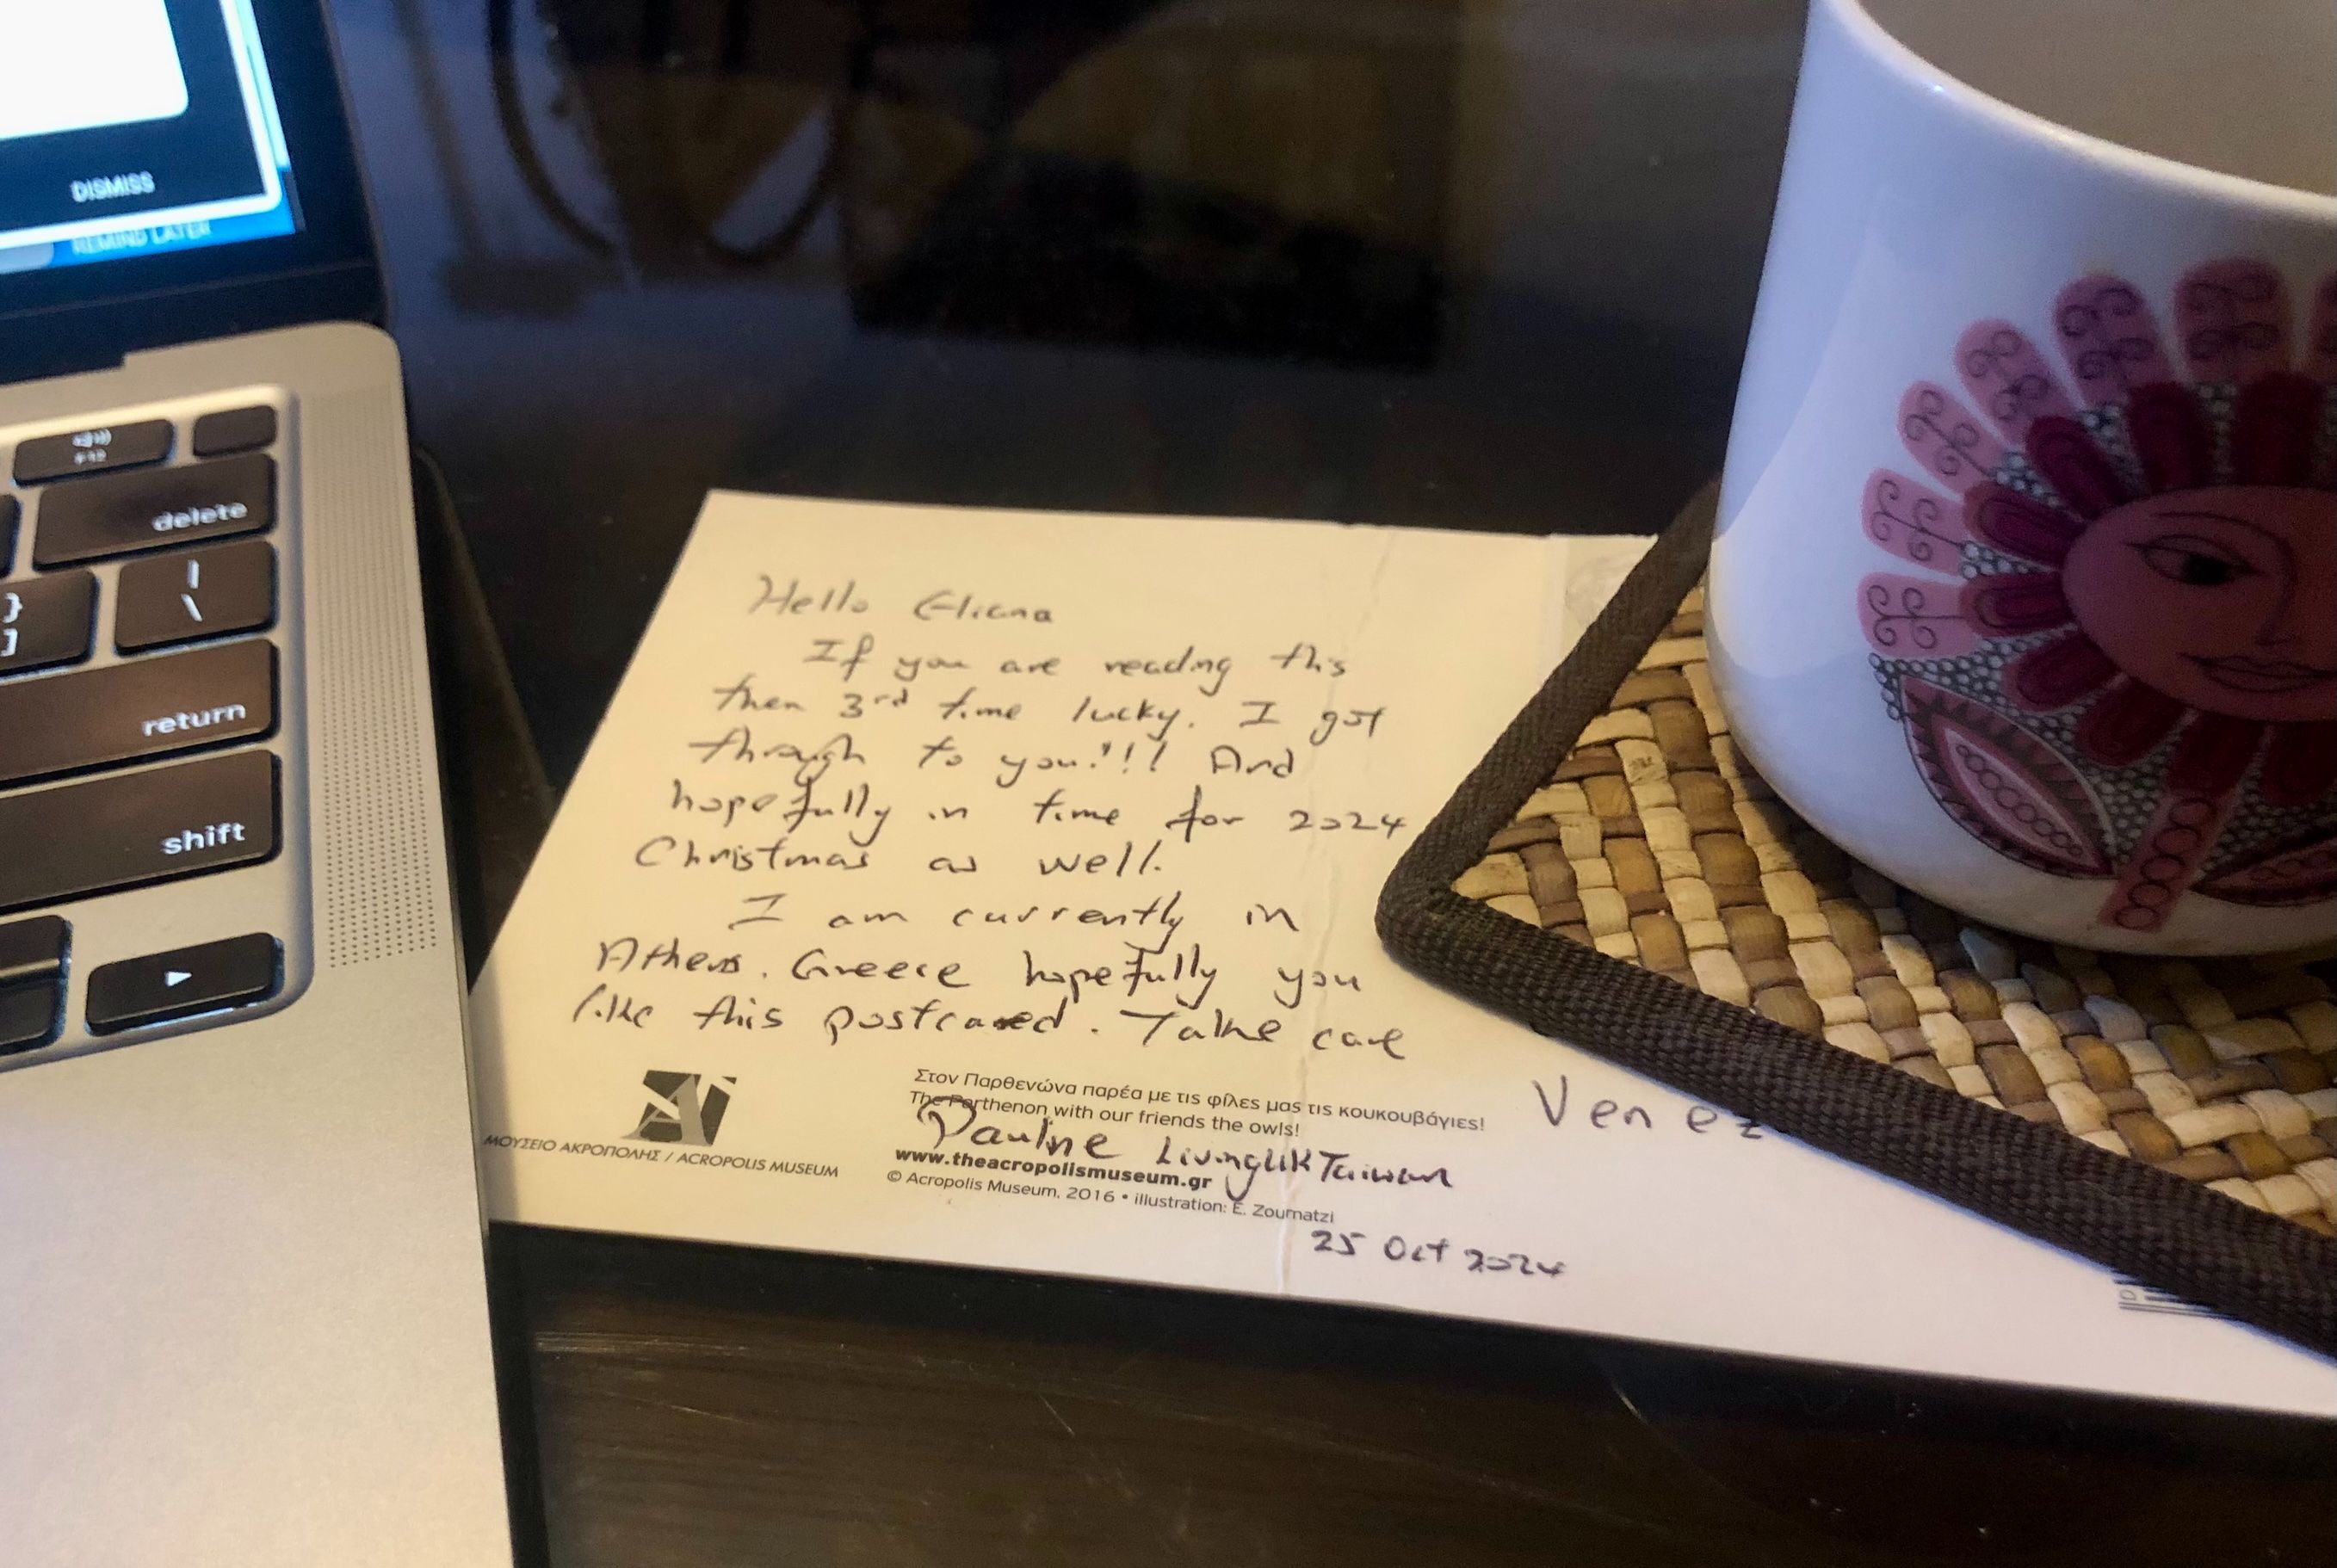 DISMISS
REMIND LATER
F12
delete
}
]
|
\
return
shift
Hello Eliana
If you are reading this
then 3rd time lucky. I got
through to you!!! And
hopefully in time for 2024
Christmas as well.
I am currently in
Athens. Greece hopefully you
like this postcard. Take care
Στον Παρθενώνα παρέα με τις φίλες μας τις κουκουβάγιες!
The Parthenon with our friends the owls!
Pauline LivingUKTaiwan
www.theacropolismuseum.gr
© Acropolis Museum, 2016 • illustration: E. Zournatzi
ΜΟΥΣΕΙΟ ΑΚΡΟΠΟΛΗΣ / ACROPOLIS MUSEUM
25 Oct 2024
Venez